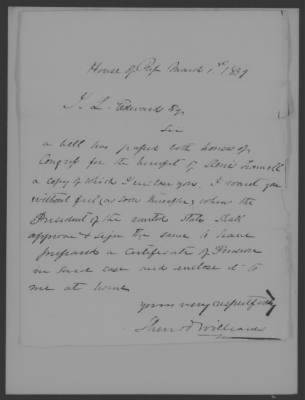 House of Rep March 1st 1839
J. L. Edwards Esq
Sir
a bill has passed both houses of
Congress for the benefit of
a copy of which I enclose you. I want you
without fail (as soon thereafter) when the
President of the United States shall
approve & sign the same to have
prepared a certificate of Pension
in said case and enclose it to
me at home
yours very respectfully
Sherrod Williams